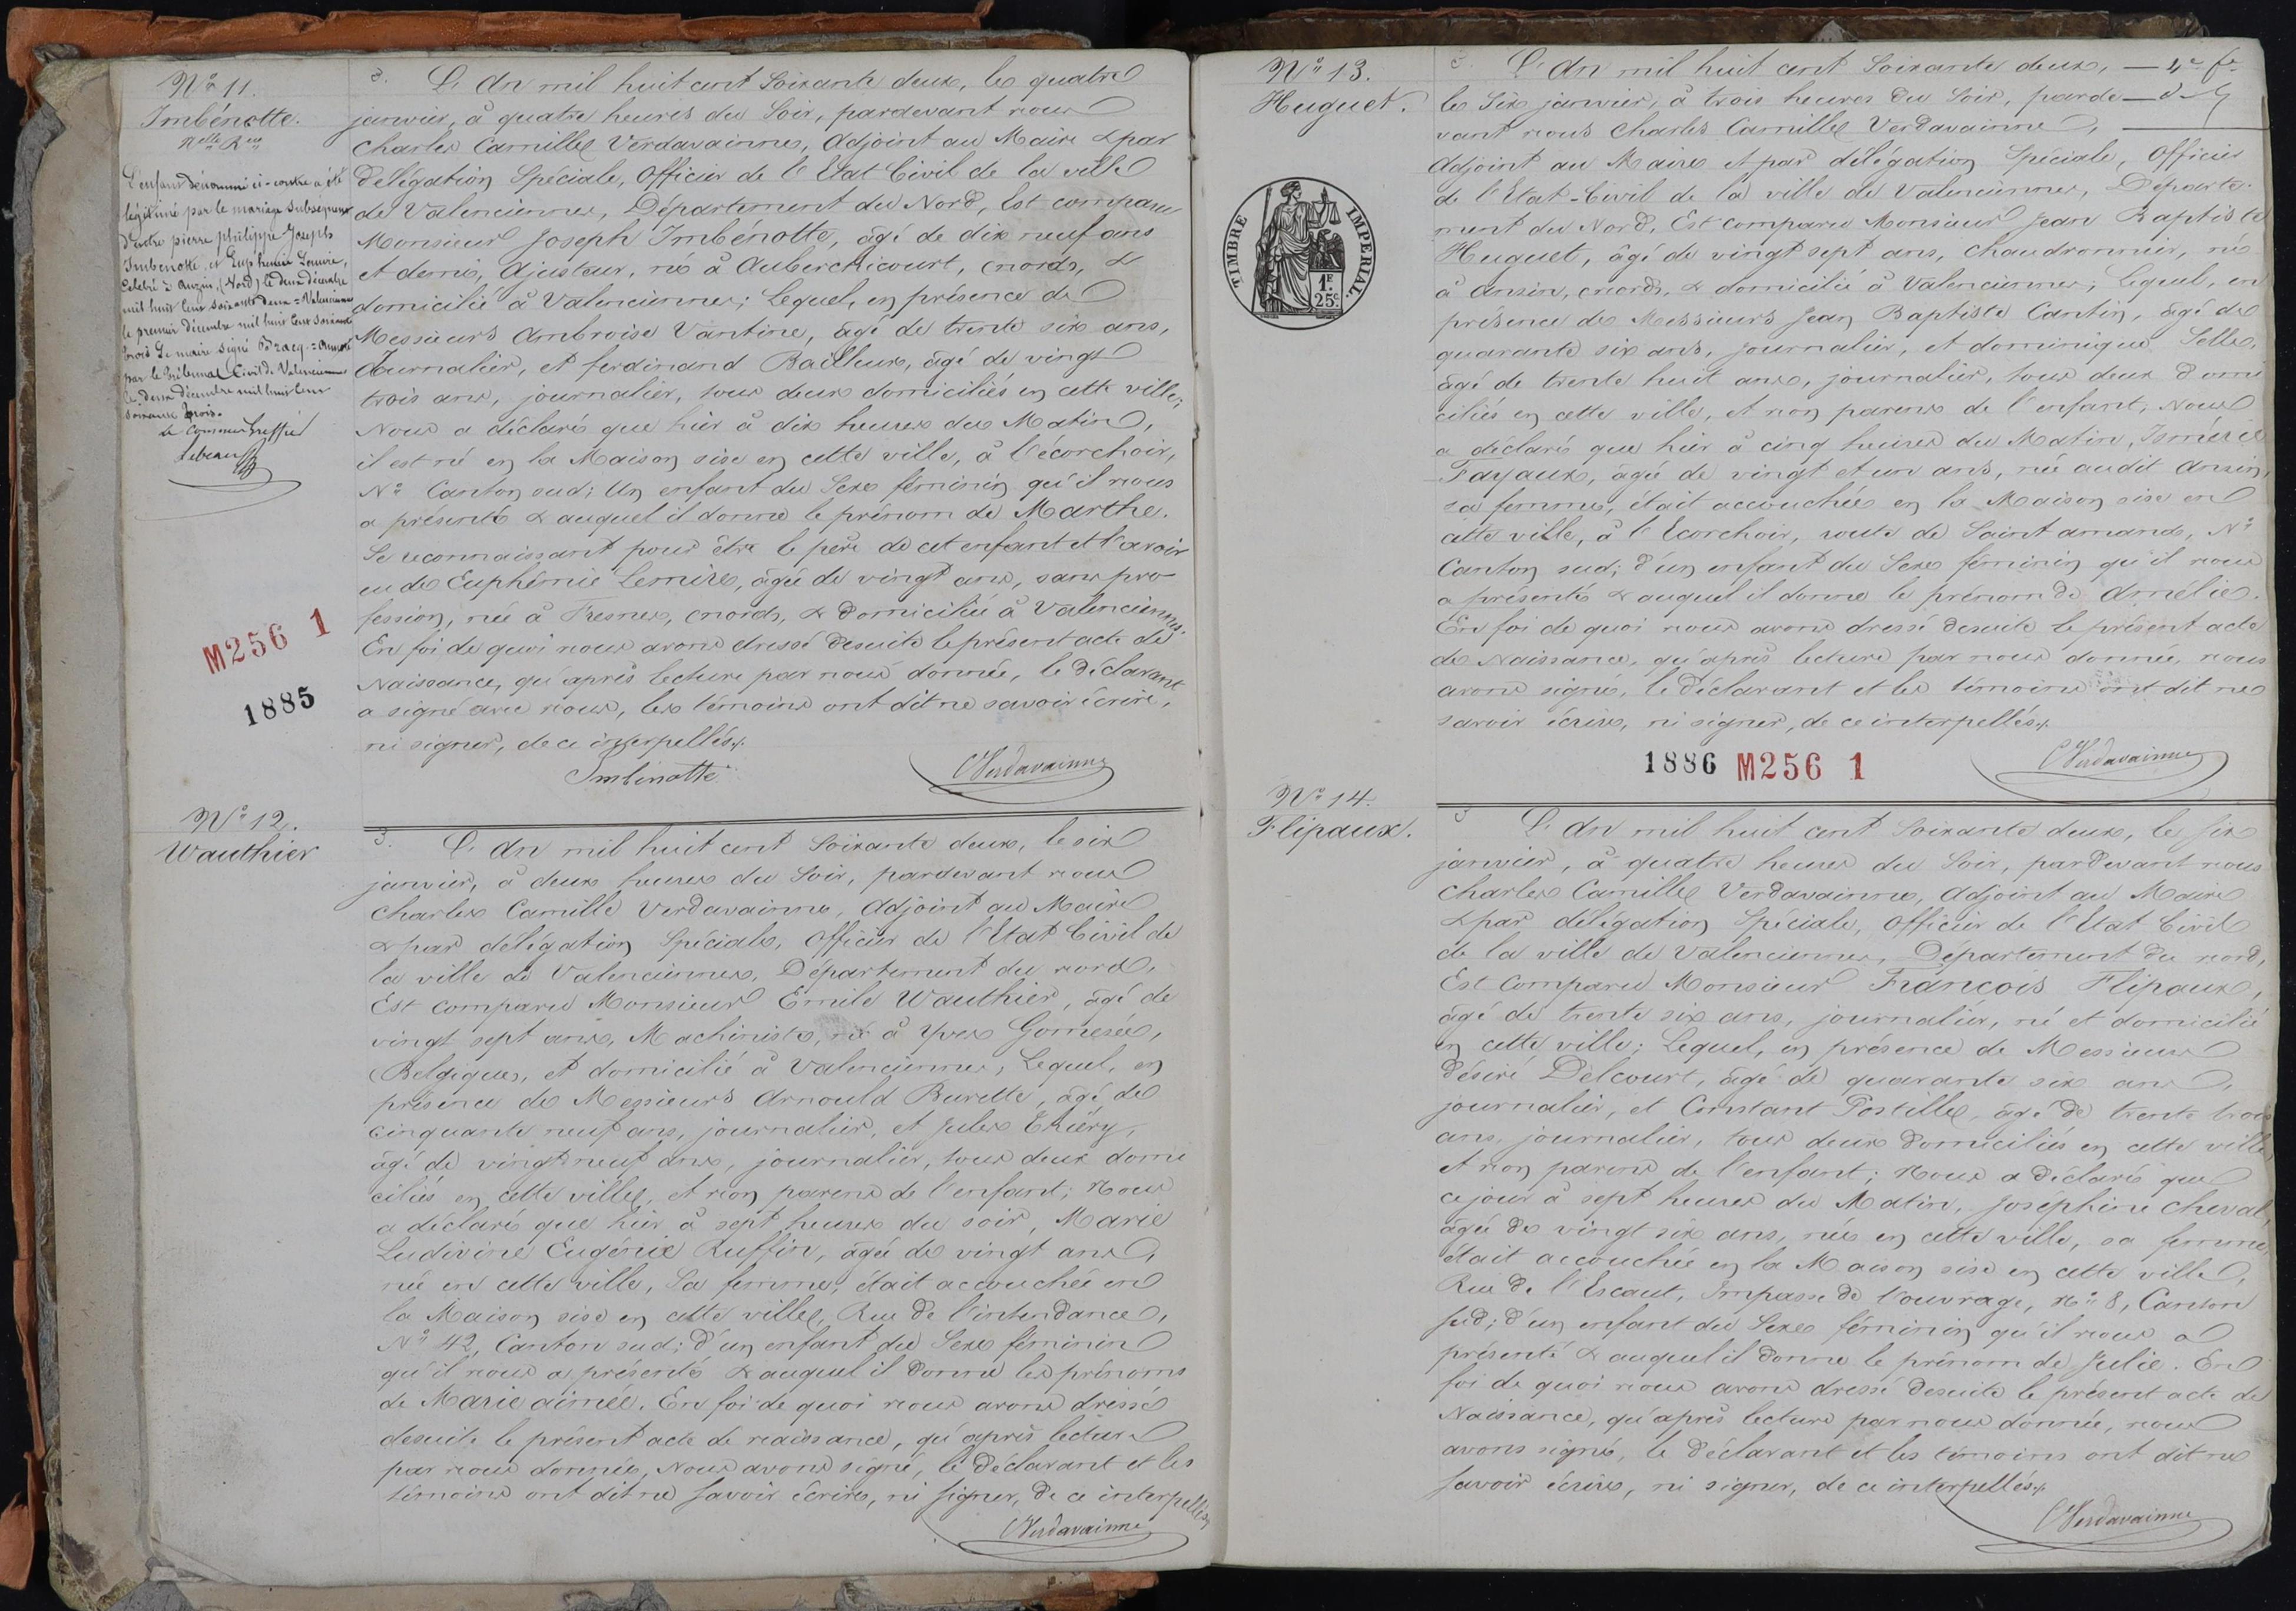 Nº 11.
Imbénotte.
Nelle Rec
L'enfant dénommé ci-contre a été
légitimé par le mariage subséquent
d'entre pierre philippe Joseph
Imbenotte et Euphémie Lemire,
célébré à Anzin, (Nord) le deux décembre
mil huit cent soixante deux = Valenciennes
le premier décembre mil huit cent soixante
trois Le maire signé Bracq =
par le tribunal Civil de Valenciennes
le deux décembre mil huit cent
soixante trois.
Le Commis Greffier
Lebeau
L'An mil huit cent Soixante deux, les quatre
janvier, à quatre heures du Soir, pardevant nous
Charles Camille Verdavainne, Adjoint au Maire & par
délégation Spéciale, Officier de l'Etat Civil de la ville
de Valenciennes, Département du Nord, Est comparu
Monsieur Joseph Imbénotte, âgé de dix neuf ans
et demi, Ajusteur, né à Auberchicourt, (nord), &
domicilié à Valenciennes; Lequel, en présence de
Messieurs Ambroise Vantine, âgé de trente six ans,
Journalier, et ferdinand Bailleux, âgé de vingt
trois ans, journalier, tous deux domiciliés en cette ville;
Nous a déclaré que hier à dix heures du Matin,
il est né en la Maison sise en cette ville, à l'écorchoir,
Nº Canton sud; Un enfant du Sexe féminin qu'il nous
a présenté & auquel il donne le prénom de Marthe.
Se reconnaissant pour être le père de cet enfant et l'avoir
eu de Euphémie Lemire, âgée de vingt ans, sans pro
fession, née à Fresnes, (nord), & domiciliée à Valenciennes.
En foi de quoi nous avons dressé desuite le présent acte de
Naissance, qu'après lecture par nous donnée, le déclarant
a signé avec nous, les témoins ont dit ne savoir écrire,
ni signer, de ce interpellés.
Imbinotte
CVerdavainne
M256 1
1885
Nº 12.
Wauthier
L'An mil huit cent Soixante deux, le six
janvier, à deux heures du Soir, pardevant nous
Charles Camille Verdavainne, Adjoint au Maire
& par délégation Spéciale, Officier de l'Etat Civil de
la ville de Valenciennes, Département du nord,
Est comparu Monsieur Emile Wauthier, âgé de
vingt sept ans, Machiniste, né à Yves Gomezée,
(Belgique), et domicilié à Valenciennes; Lequel, en
présence de Messieurs Arnould Burette, âgé de
cinquante neuf ans, journalier, et Jules Thiéry,
âgé de vingt neuf ans, journalier, tous deux domi
ciliés en cette ville, et non parens de l'enfant; Nous
a déclaré que hier à sept heures du soir, Marie
Ludivine Eugénie Ruffin, âgée de vingt ans,
née en cette ville, Sa femme, était accouchée en
la Maison sise en cette ville, Rue de l'intendance,
Nº 42, Canton sud; d'un enfant du Sexe féminin
qu'il nous a présenté & auquel il donne les prénoms
de Marie aimée. En foi de quoi nous avons dressé
desuite le présent acte de naissance, qu'après lecture
par nous donnée, Nous avons signé, le déclarant et les
témoins ont dit ne savoir écrire, ni signer, de ce interpellés
CVerdavainne
Nº 13.
Huguet.
TIMBRE IMPERIAL.
1F.
25c.
L'An mil huit cent Soixante deux, — 4e fe
les Six janvier, à trois heures du Soir, parde
vant nous Charles Camille Verdavainne,
Adjoint au Maire et par délégation Spéciale, Officier
de l'Etat-Civil de la ville de Valenciennes, Départe
ment du Nord, Est comparu Monsieur Jean Baptiste
Huguet, âgé de vingt sept ans, Chaudronnier, né
à Anzin, (nord), & domicilié à Valenciennes; Lequel, en
présence de Messieurs Jean Baptiste Cantin, âgé de
quarante six ans, journalier, et dominique Selle,
âgé de trente huit ans, journalier, tous deux domi
ciliés en cette ville, et non parens de l'enfant; Nous
a déclaré que hier à cinq heures du Matin, Isménie
Fayaux, âgée de vingt et un ans, née audit Anzin,
sa femme, était accouchée en la Maison sise en
cette ville, à l'Ecorchoir, route de Saint amand, Nº
Canton sud; d'un enfant du Sexe féminin qu'il nous
a présenté & auquel il donne le prénom de Amélie.
En foi de quoi nous avons dressé desuite le présent acte
de Naissance, qu'après lecture par nous donnée, nous
avons signé, le déclarant et les témoins ont dit ne
savoir écrire, ni signer, de ce interpellés.
CVerdavainne
1886 M256 1
Nº 14.
Flipaux.
L'An mil huit cent Soixante deux, le six
janvier, à quatre heures du Soir, pardevant nous
Charles Camille Verdavainne, Adjoint au Maire
& par délégation Spéciale, Officier de l'Etat Civil
de la ville de Valenciennes, Département du nord,
Est comparu Monsieur François Flipaux,
âgé de trente six ans, journalier, né et domicilié
en cette ville; Lequel, en présence de Messieurs
désiré Delcourt, âgé de quarante six ans,
journalier, et Constant Postille, âgé de trente trois
ans, journalier, tous deux domiciliés en cette ville
et non parens de l'enfant; Nous a déclaré que
ce jour à sept heures du Matin, Joséphine Cheval,
âgée de vingt six ans, née en cette ville, sa femme,
était accouchée en la Maison sise en cette ville,
Rue de l'Escaut, Impasse de l'ouvrage, Nº 8, Canton
sud; d'un enfant du Sexe féminin qu'il nous a
présenté & auquel il donne le prénom de Julie. En
foi de quoi nous avons dressé desuite le présent acte de
Naissance, qu'après lecture par nous donnée, nous
avons signé, le déclarant et les témoins ont dit ne
savoir écrire, ni signer, de ce interpellés.
CVerdavainne